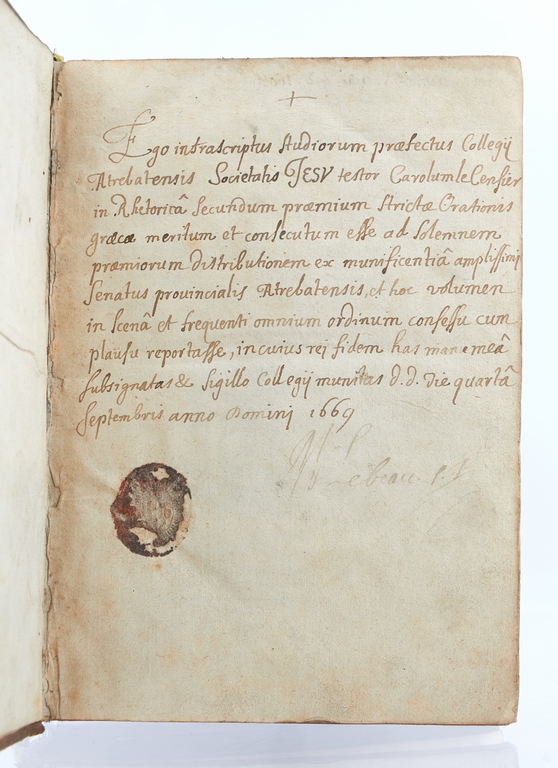 +
Ego infrascriptus studiorum præfectus Collegij
Atrebatensis Societatis JESV testor Carolum le Censier
in Rhetoricâ secundum præmium strictæ Orationis
græcæ meritum et consecutum esse ad solemnem
præmiorum distributionem ex munificentiâ amplissimi
senatus provincialis Atrebatensis, et hoc volumen
in scenâ et frequenti omnium ordinum confessu cum
plausu reportasse, in cuius rei fidem has manu meâ
subsignatas & sigillo Collegij munitas d.d. die quartâ
septembris anno Domini 1669